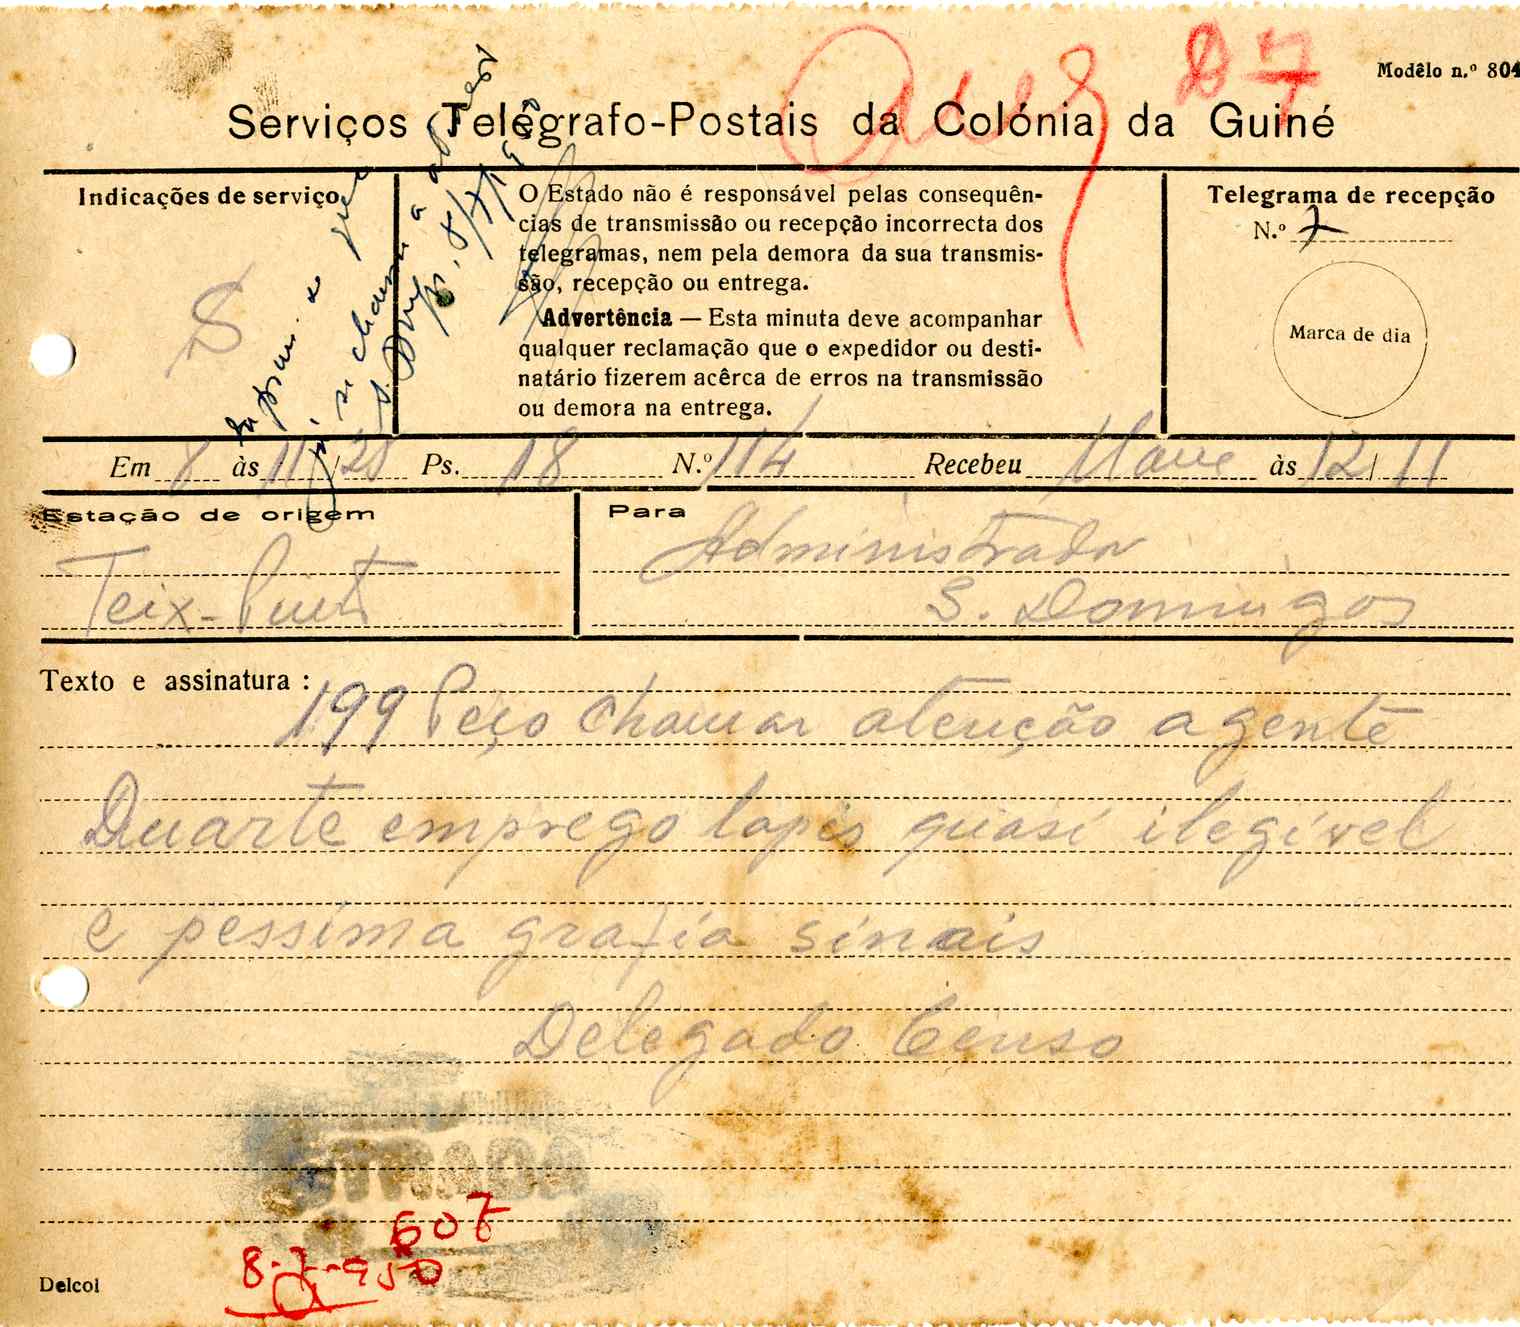 Modêlo n.º 804
Serviços Telégrafo-Postais da Colónia da Guiné
D 7
Indicações de serviço
S
O Estado não é responsável pelas consequên-
cias de transmissão ou recepção incorrecta dos
telegramas, nem pela demora da sua transmis-
são, recepção ou entrega.
Advertência — Esta minuta deve acompanhar
qualquer reclamação que o expedidor ou desti-
natário fizerem acêrca de erros na transmissão
ou demora na entrega.
Telegrama de recepção
N.º 7
Marca de dia
Em 8 às 11/20 Ps. 18 N.º 114 Recebeu às 12/11
Estação de origem
Teix-Pinto
Para
Administrador
S. Domingos
Texto e assinatura :
199 Peço chamar atenção agente
Duarte emprego lapis quasi ilegível
e pessima grafia sinais
Delegado Censo
607
8-7-950
Delcol